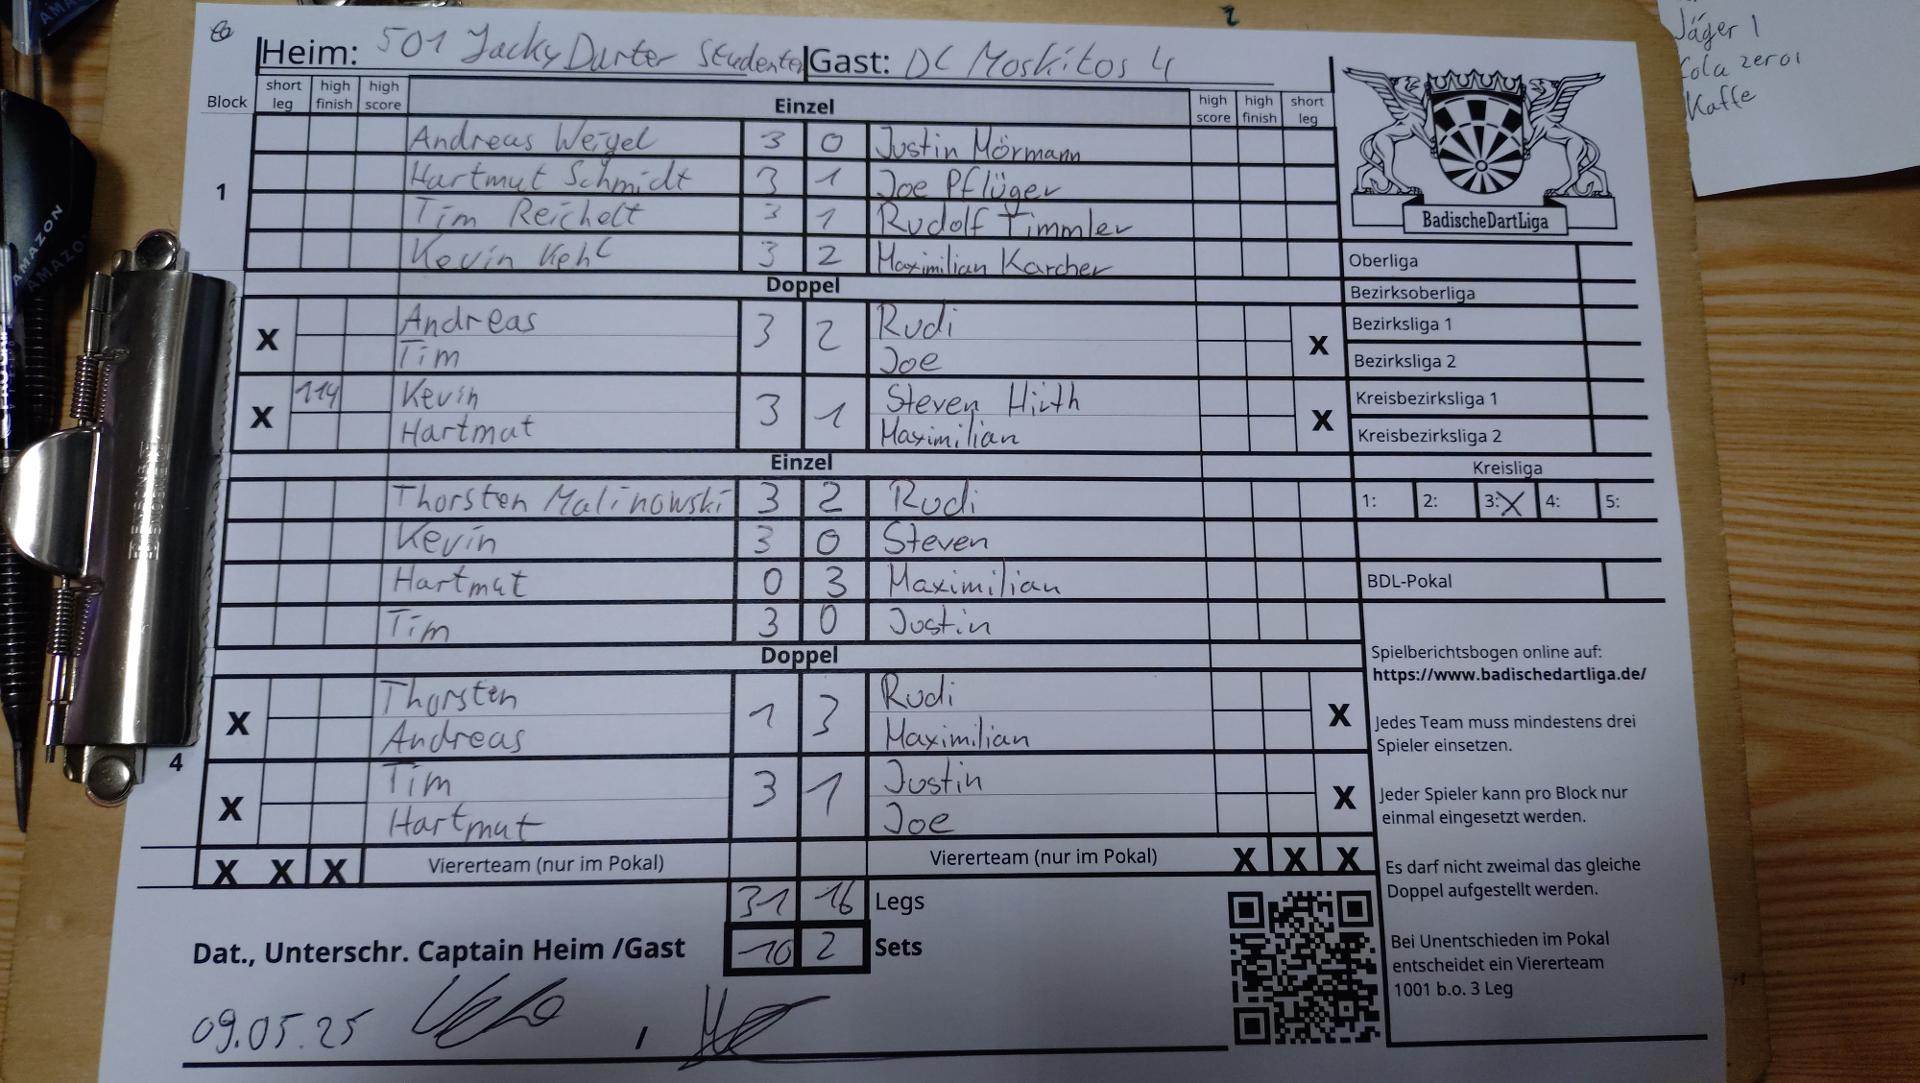 Heim: 501 Jacky Darter Studenten Gast: DC Moskitos 4
Block short leg high finish high score Einzel high score high finish short leg
Andreas Weigel 3 0 Justin Mörmann
1 Hartmut Schmidt 3 1 Joe Pflüger
Tim Reichelt 3 1 Rudolf Timmler
Kevin Kehl 3 2 Maximilian Karcher
Doppel
X Andreas 3 2 Rudi X
Tim Joe
X 114 Kevin 3 1 Steven Hirth X
Hartmut Maximilian
Einzel
Thorsten Malinowski 3 2 Rudi
Kevin 3 0 Steven
Hartmut 0 3 Maximilian
Tim 3 0 Justin
Doppel
X Thorsten 1 3 Rudi X
Andreas Maximilian
4
X Tim 3 1 Justin X
Hartmut Joe
X X X Viererteam (nur im Pokal) Viererteam (nur im Pokal) X X X
31 16 Legs
Dat., Unterschr. Captain Heim /Gast 10 2 Sets
09.05.25
BadischeDartLiga
Oberliga
Bezirksoberliga
Bezirksliga 1
Bezirksliga 2
Kreisbezirksliga 1
Kreisbezirksliga 2
Kreisliga
1: 2: 3: X 4: 5:
BDL-Pokal
Spielberichtsbogen online auf:
https://www.badischedartliga.de/
Jedes Team muss mindestens drei
Spieler einsetzen.
Jeder Spieler kann pro Block nur
einmal eingesetzt werden.
Es darf nicht zweimal das gleiche
Doppel aufgestellt werden.
Bei Unentschieden im Pokal
entscheidet ein Viererteam
1001 b.o. 3 Leg
Jäger 1
Cola zero 1
Kaffe
AMAZON
AMAZON